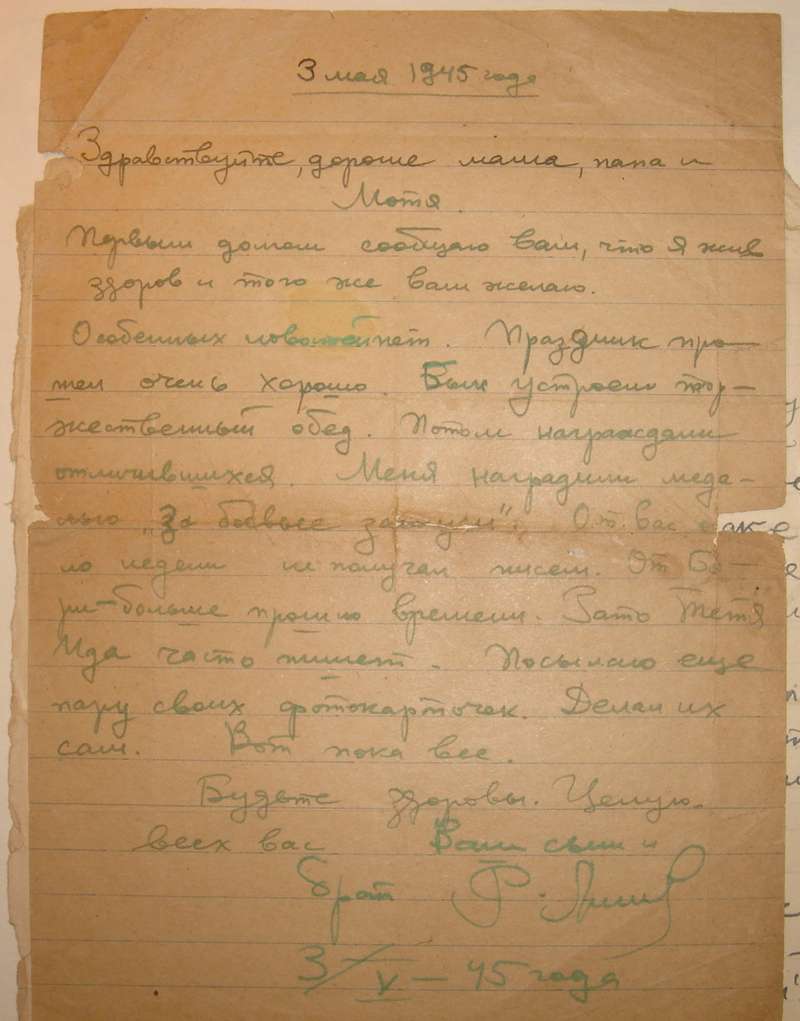 3 мая 1945 года
Здравствуйте, дороше мама, папа и
Мотя.
Первым долгом сообщаю вам, что я жив
здоров и того же вам желаю.
Особенных новостей нет. Праздник про–
шел очень хорошо. Был устроен тор–
жественный обед. Потом награждали
отличившихся. Меня наградили меда–
лью „За боевые заслуги". От вас
ло недели не получал писем. От Бо–
ри – больше прошло времени. Зато Тетя
Ида часто пишет. Посылаю еще
пару своих фотокарточек. Делал их
сам. Вот пока все.
Будьте здоровы. Целую
всех вас Ваш сын и
брат Р.
3/V – 45 года